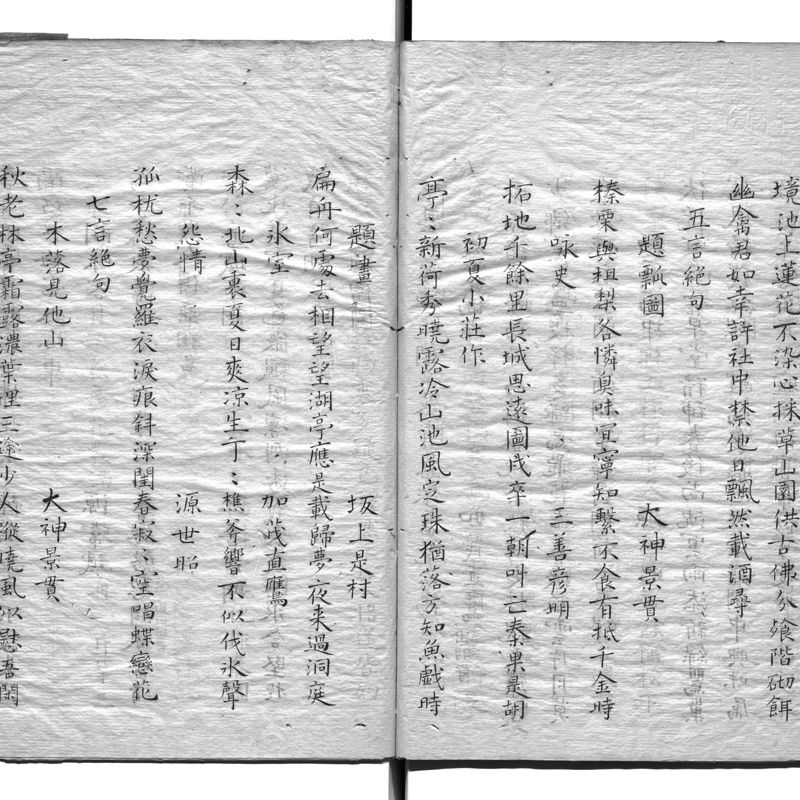 境池上蓮花不染心採草山園供古佛分飧階砌餌
幽禽君如幸許社中禁他日飄然載酒尋
五言絶句
題瓢圖 大神景貫
榛栗與柤梨各憐臭味宜寧知繫不食有抵千金時
咏史 三善彦明
拓地千餘里長城思遠圖戍卒一朝叫亡秦果是胡
初夏小莊作
亭〻新荷秀曉露冷山池風定珠猶落方知魚戯時
題畫 坂上是村
扁舟何處去相望望湖亭應是載歸夢夜来過洞庭
氷室 加茂直鷹
森〻北山裏夏日爽凉生丁〻樵斧響不似伐氷聲
怨情 源世昭
孤枕愁夢覺羅衣淚痕斜深閨春寂〻空唱蝶戀花
七言絶句
木落見他山 大神景貫
秋老林亭霜露濃葉埋三逕少人蹤曉風似慰吾閑